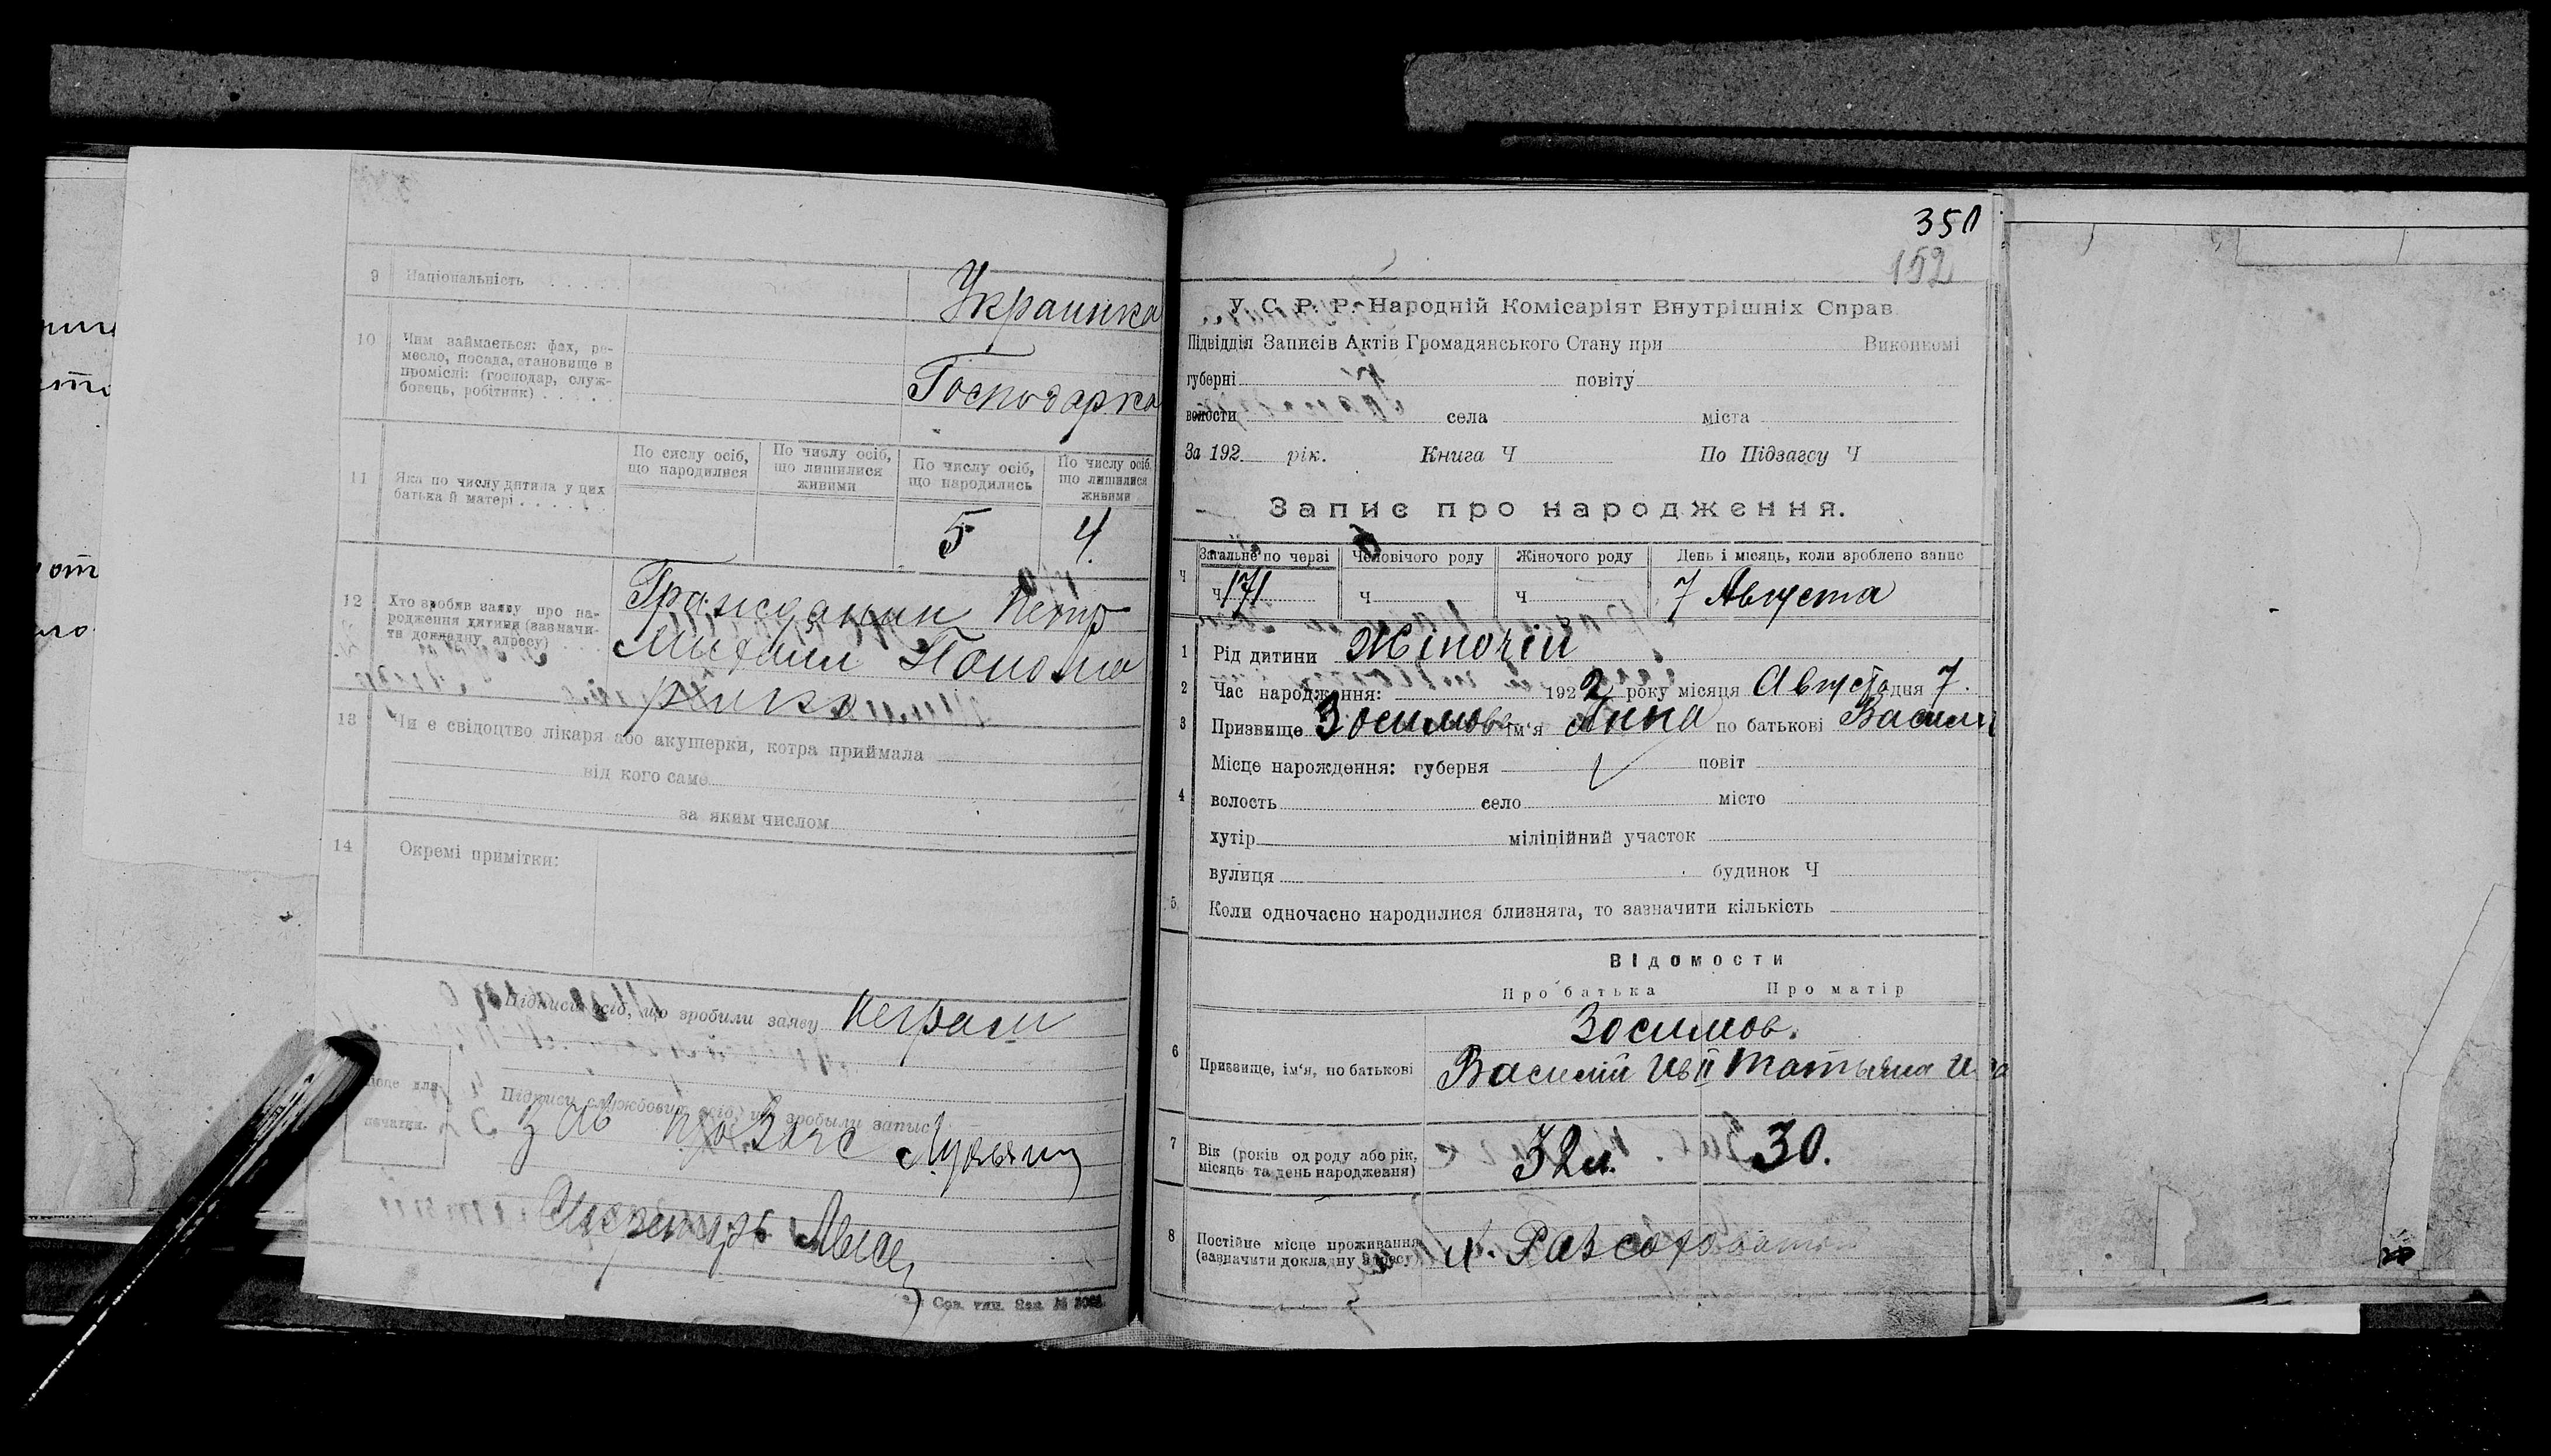 9 Національність Украинка
10 Чим займається: фах, ре-
месло, посада, становище в
проміслі: (господар, служ-
бовець, робітник) Господарка
По сислу осіб, що народилися
По числу осіб, що лишилися живими
По числу осіб, що народились
По числу осіб, що лишилися живими
11 Яка по числу дитина у цих
батька й матері 5 4
12 Хто зробив заяву про на-
родження дитини (зазначи-
ти докладну адресу)
Гражданин Петр
Михайл
13 Чи є свідоцтво лікаря або акушерки, котра приймала
від кого саме
за яким числом
14 Окремі примітки:
Підписи осіб, що зробили заяву Неграм
Підписи службових осіб, що зробыли запис
Місце для
печатки.
350
152
У. С. Р. Р. Народній Комісаріят Внутрішніх Справ
Підвідділ Записів Актів Громадянського Стану при Виконкомі
губерні повіту
волости села міста
За 192 рік. Книга Ч По Підзагсу Ч
Запис про народження.
Загальне по черзі Чоловічого роду Жіночого роду День і місяць, коли зроблено запис
Ч ч 171 ч ч 7 Августа
1 Рід дитини Жіночій
2 Час народження: 1922 року місяця Август дня 7.
3 Призвище Зосимова ім'я Анна по батькові Васили
Місце народження: губерня повіт
4 волость село місто
хутір міліційний участок
вулиця будинок Ч
5 Коли одночасно народилися близнята, то зазначити кількість
Відомости
Про батька Про матір
Зосимов.
6 Призвище, ім'я, по батькові Василий Ив Татьяна
7 Вік (років од роду або рік,
місяць та день народження) 32 л. 30.
8 Постійне місце проживання
(зазначити докладну адресу)